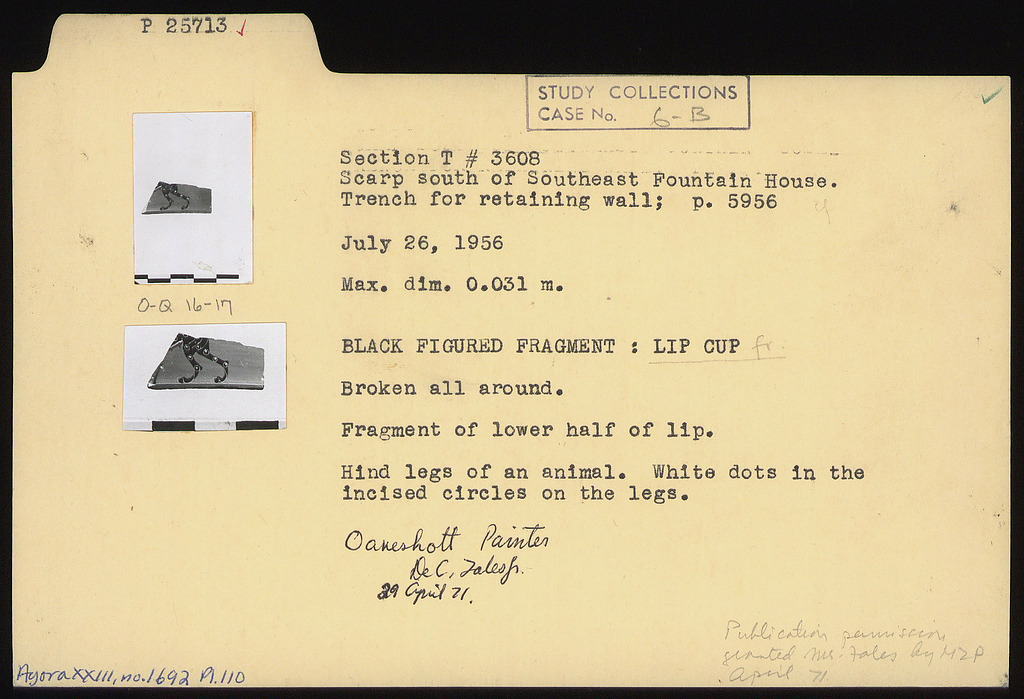 P 25713
STUDY COLLECTIONS
CASE No. 6-B
Section T # 3608
Scarp south of Southeast Fountain House.
Trench for retaining wall; p. 5956
July 26, 1956
Max. dim. 0.031 m.
O-Q 16-17
BLACK FIGURED FRAGMENT : LIP CUP fr.
Broken all around.
Fragment of lower half of lip.
Hind legs of an animal. White dots in the
incised circles on the legs.
Oakeshott Painter
DeC. Fales Jr.
29 April 71.
Publication permission
granted Mr. Fales by MZP
April 71
Agora XXIII, no. 1692 Pl. 110